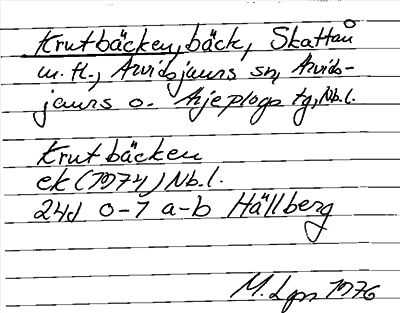 Krutbäcken, bäck, Skattån
m. fl., Arvidsjaurs sn, Arvids-
jaurs o. Arjeplogs tg, Nb.l.
Krutbäcken
ek (1974) Nb.l.
24d 0-1 a-b Hällberg
M. Lgn 1976